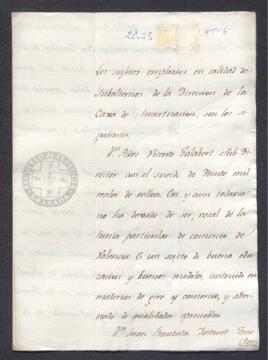 22-25
Los sujetos empleados en calidad de
Subalternos de la Direccion de la
Caxa de Amortizacion, son los si
guientes.
Dn. Pedro Vicente Galabert Sub Di
rector con el sueldo de Veinte mil
reales de vellon. Es, y aun todavia
no ha dexado de ser, vocal de la
Junta particular de comercio de
Valencia. Es un sujeto de buena edu
cacion y buenos modales, instruido en
materias de giro y comercio, y ador
nado de qualidades apreciables.
Dn. Juan Bautista